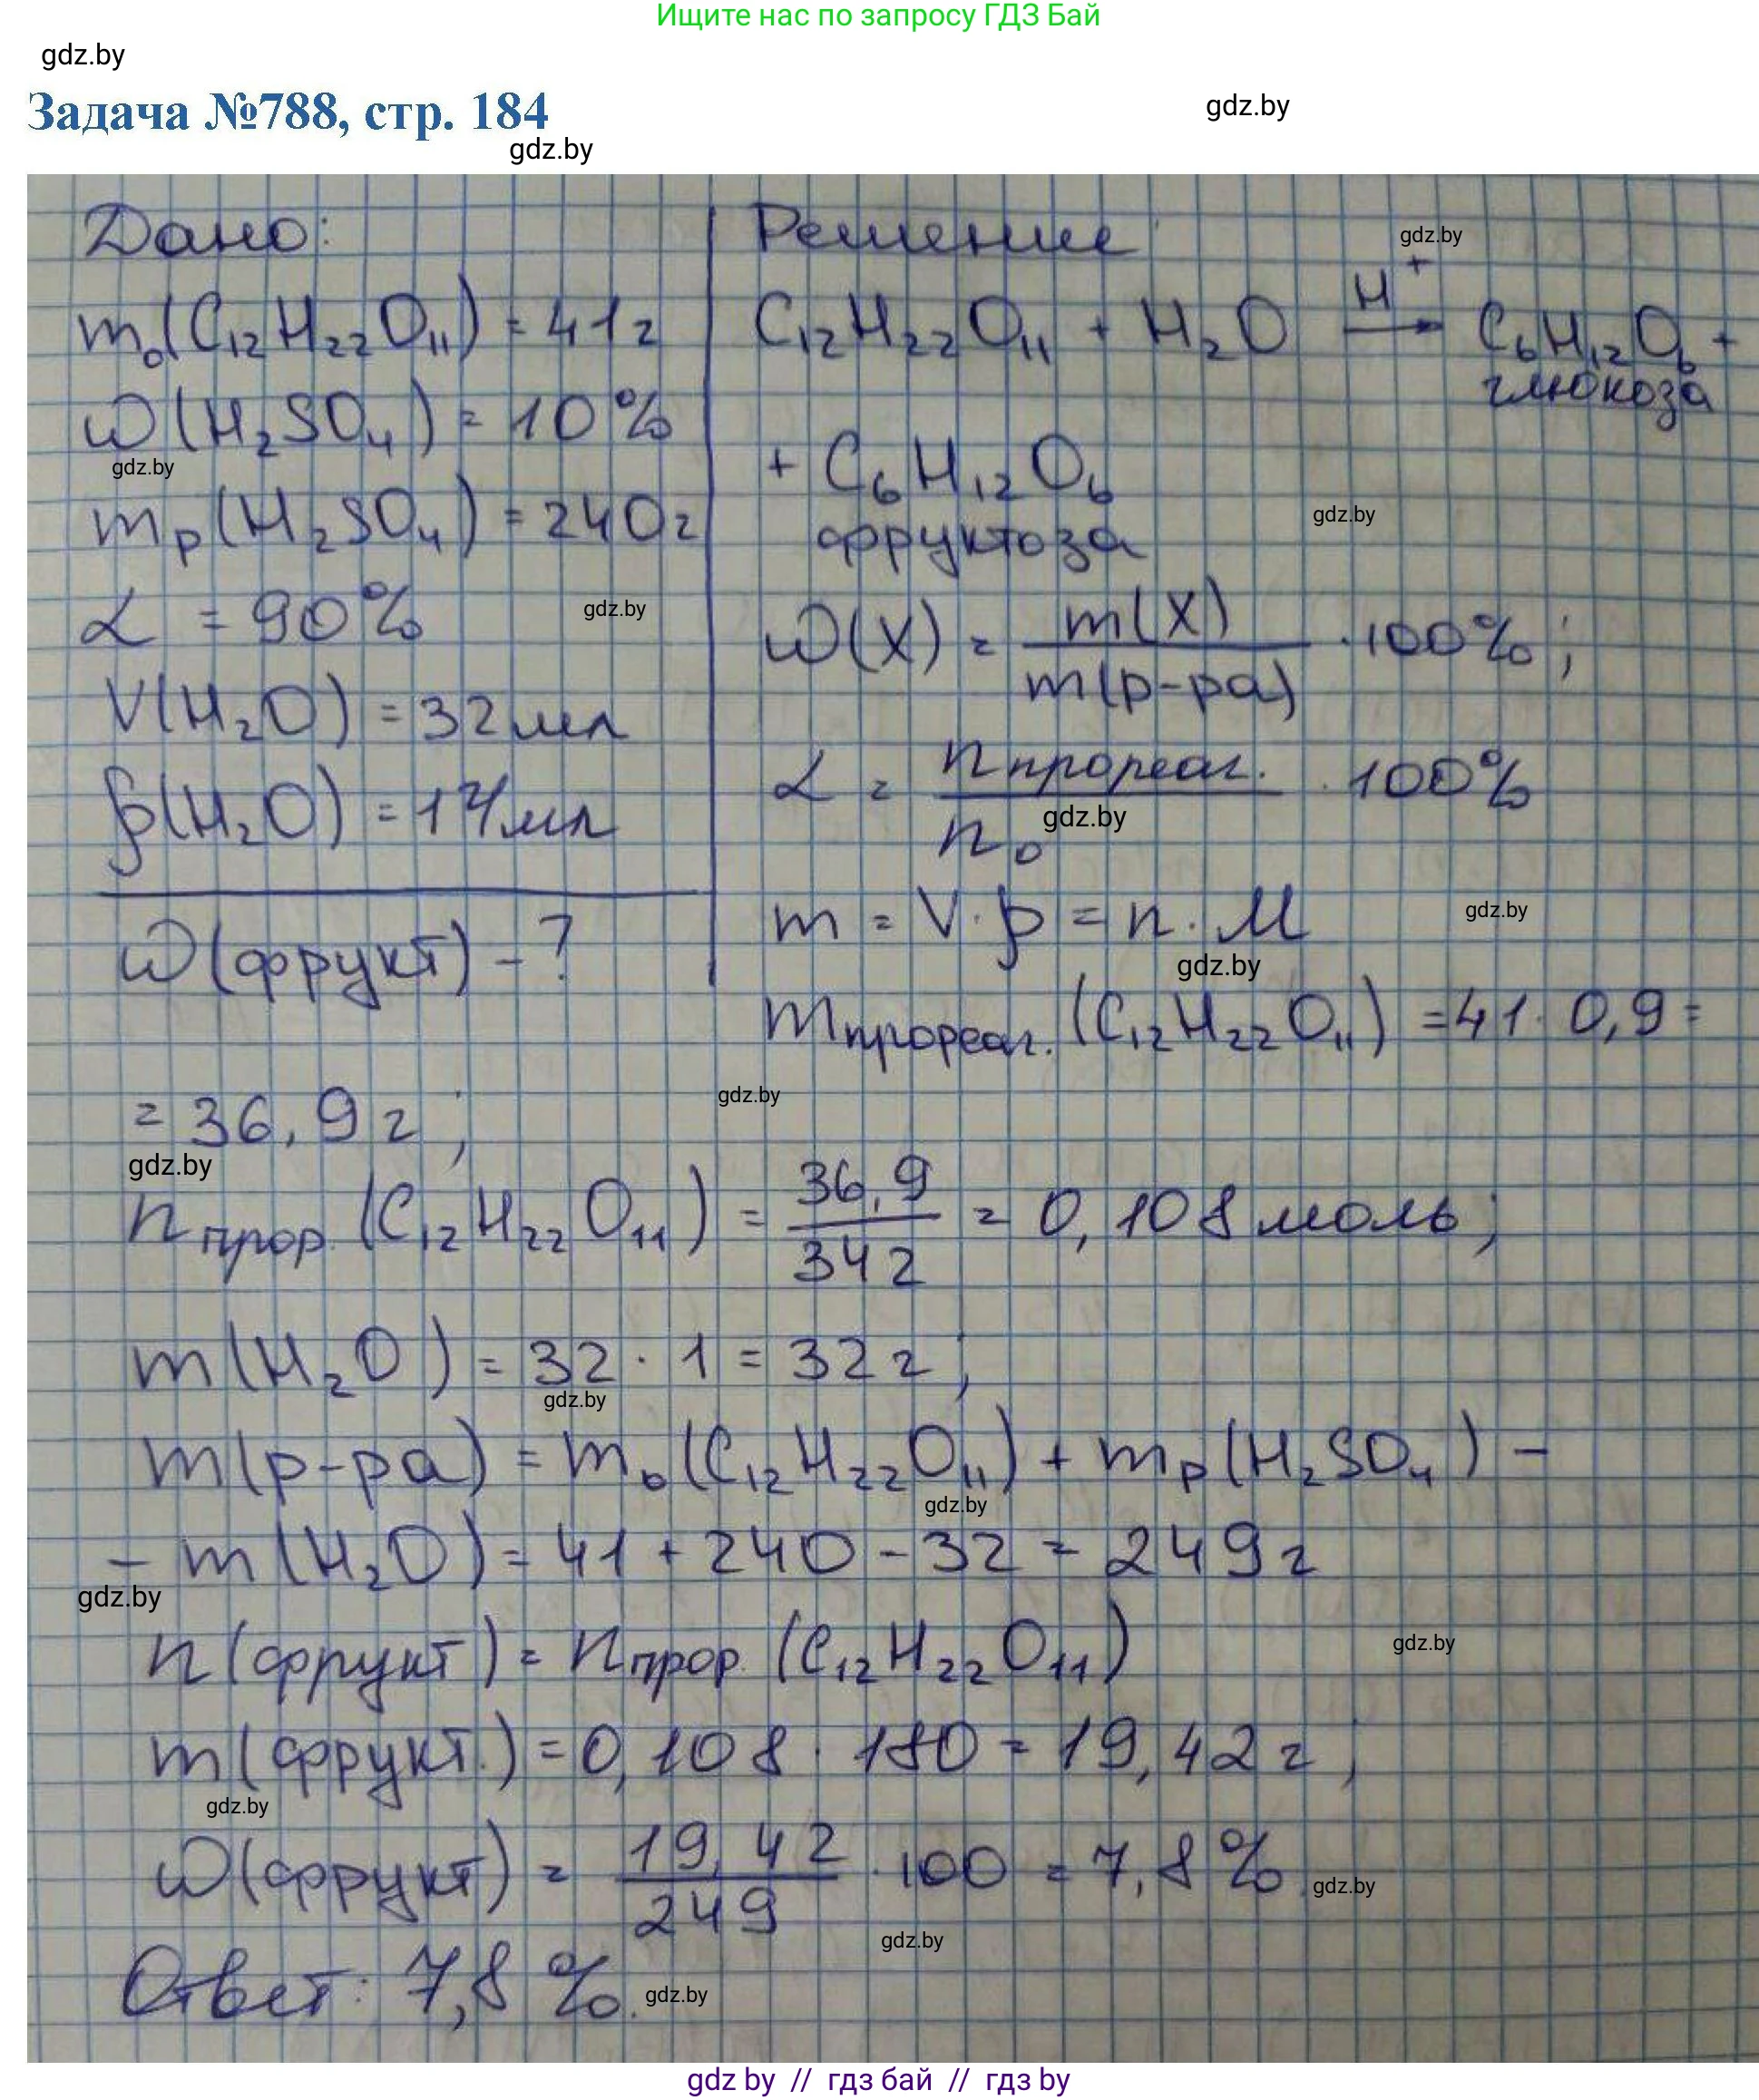 Ищите нас по запросу ГДЗ Бай
gdz.by
Задача №788, стр. 184
gdz.by
gdz.by
Дано:
m₀(C₁₂H₂₂O₁₁) = 41г
ω(H₂SO₄) = 10%
gdz.by
mр(H₂SO₄) = 240г
α = 90%
gdz.by
V(H₂O) = 32мл
ρ(H₂O) = 1г/мл
ω(фрукт) - ?
Решение
gdz.by
C₁₂H₂₂O₁₁ + H₂O —H⁺→ C₆H₁₂O₆ +
глюкоза
+ C₆H₁₂O₆
фруктоза
gdz.by
ω(X) = m(X) / m(р-ра) · 100%;
α = nпрореаг. / n₀ · 100%
gdz.by
m = V · ρ = n · M
gdz.by
gdz.by
mпрореаг. (C₁₂H₂₂O₁₁) = 41 · 0,9 =
= 36,9 г;
gdz.by
gdz.by
nпрор. (C₁₂H₂₂O₁₁) = 36,9 / 342 = 0,108 моль;
m(H₂O) = 32 · 1 = 32 г;
gdz.by
m(р-ра) = m₀(C₁₂H₂₂O₁₁) + mр(H₂SO₄) -
gdz.by
- m(H₂O) = 41 + 240 - 32 = 249 г
gdz.by
n(фрукт) = nпрор. (C₁₂H₂₂O₁₁)
gdz.by
m(фрукт.) = 0,108 · 180 = 19,42 г;
gdz.by
ω(фрукт) = 19,42 / 249 · 100 = 7,8%
gdz.by
gdz.by
Ответ: 7,8%.
gdz.by
gdz.by // гдз бай // gdz.by